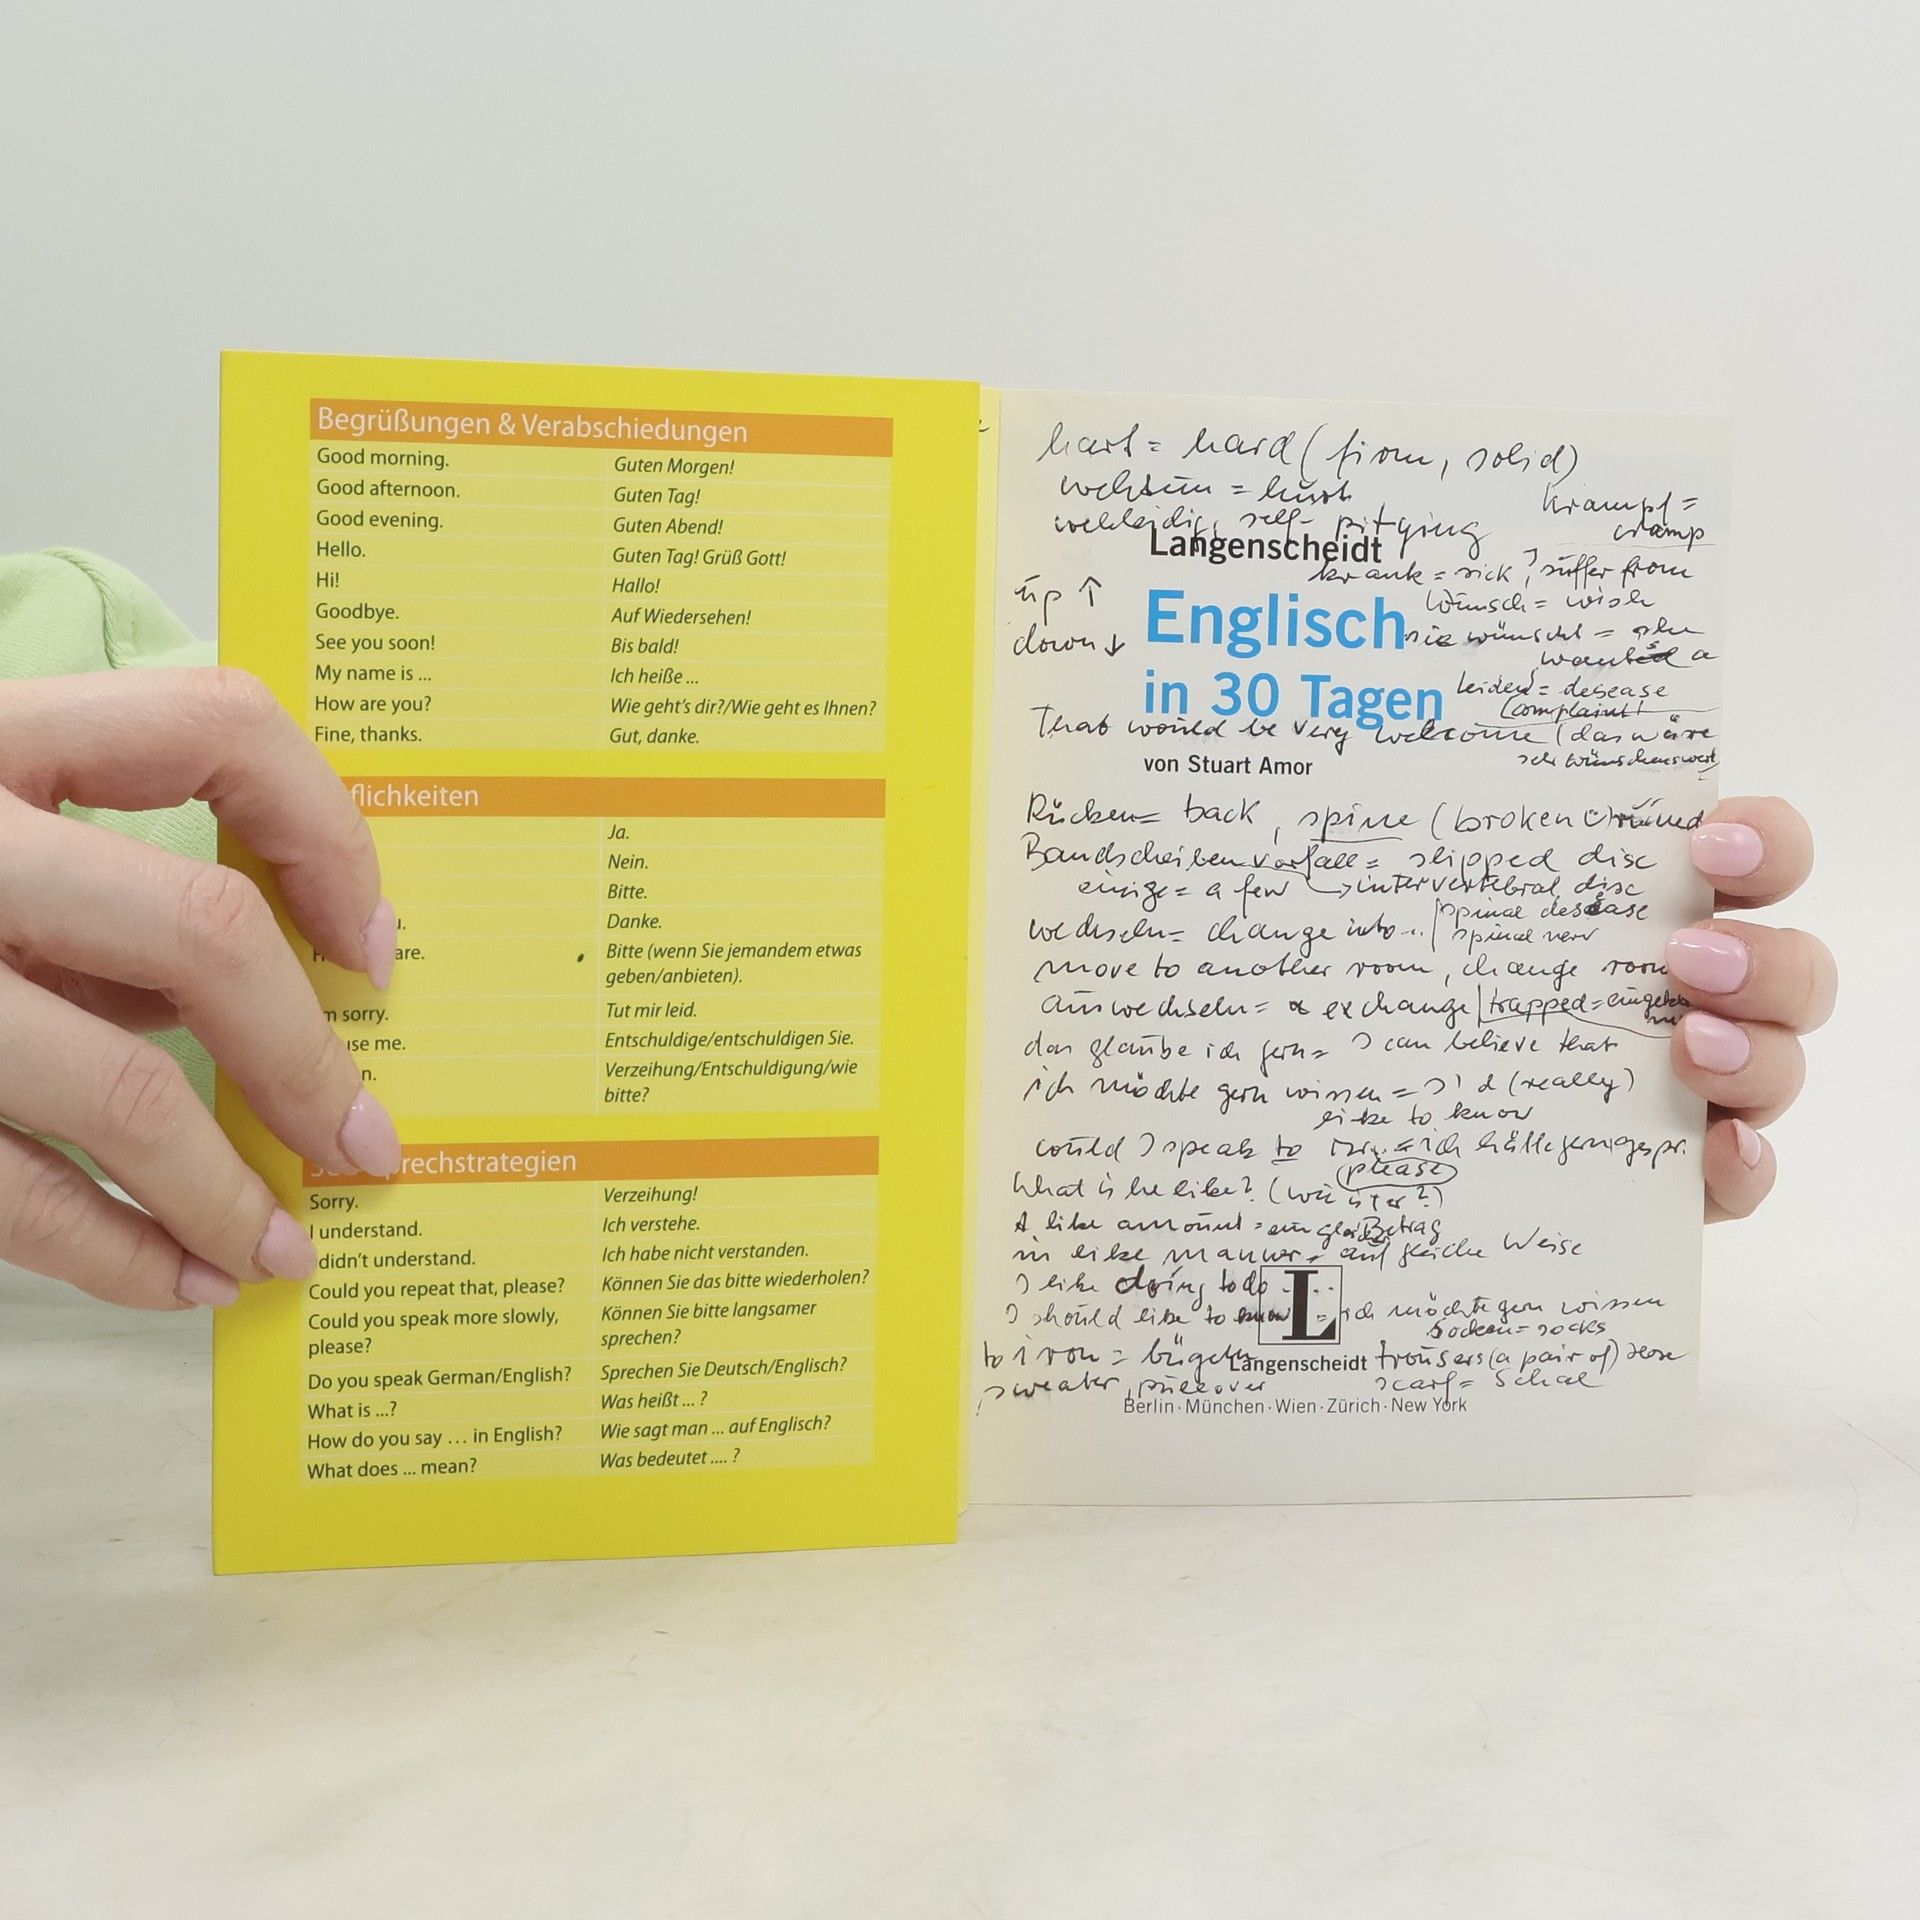 Begrüßungen & Verabschiedungen
Good morning. Guten Morgen!
Good afternoon. Guten Tag!
Good evening. Guten Abend!
Hello. Guten Tag! Grüß Gott!
Hi! Hallo!
Goodbye. Auf Wiedersehen!
See you soon! Bis bald!
My name is ... Ich heiße ...
How are you? Wie geht's dir?/Wie geht es Ihnen?
Fine, thanks. Gut, danke.
flichkeiten
Ja.
Nein.
Bitte.
Danke.
are. Bitte (wenn Sie jemandem etwas
geben/anbieten).
m sorry. Tut mir leid.
use me. Entschuldige/entschuldigen Sie.
n. Verzeihung/Entschuldigung/wie
bitte?
prechstrategien
Sorry. Verzeihung!
I understand. Ich verstehe.
didn't understand. Ich habe nicht verstanden.
Could you repeat that, please? Können Sie das bitte wiederholen?
Could you speak more slowly, Können Sie bitte langsamer
please? sprechen?
Do you speak German/English? Sprechen Sie Deutsch/Englisch?
What is ...? Was heißt ... ?
How do you say ... in English? Wie sagt man ... auf Englisch?
What does ... mean? Was bedeutet .... ?
hart = hard (firm, solid)
wehtun = hurt
Krampf =
cramp
wehleidig, self-pitying
Langenscheidt
krank = sick, suffer from
up ↑
Wunsch = wish
Englisch
down ↓
sie wünscht = she
wants a
in 30 Tagen
Leiden = desease
complaint!
That would be very welcome (das wäre
sehr wünschenswert
von Stuart Amor
Rücken = back, spine (broken ruined
Bandscheibenvorfall = slipped disc
einige = a few → intervertebral disc
spinal desease
wechseln = change into...
spinal nerv
move to another room, change room
auswechseln = exchange | trapped =
das glaube ich gern = I can believe that
ich möchte gern wissen = I'd (really)
like to know
could I speak to = ich hätte gern gespr.
please
What is he like? (wie ist er?)
A like amount = ein gleicher Betrag
in like manner = auf gleiche Weise
I like doing to do ...
I should like to know = ich möchte gern wissen
Socken = socks
L
to iron = bügeln
Langenscheidt
trousers (a pair of) Hose
sweater, pullover
scarf = Schal
Berlin · München · Wien · Zürich · New York